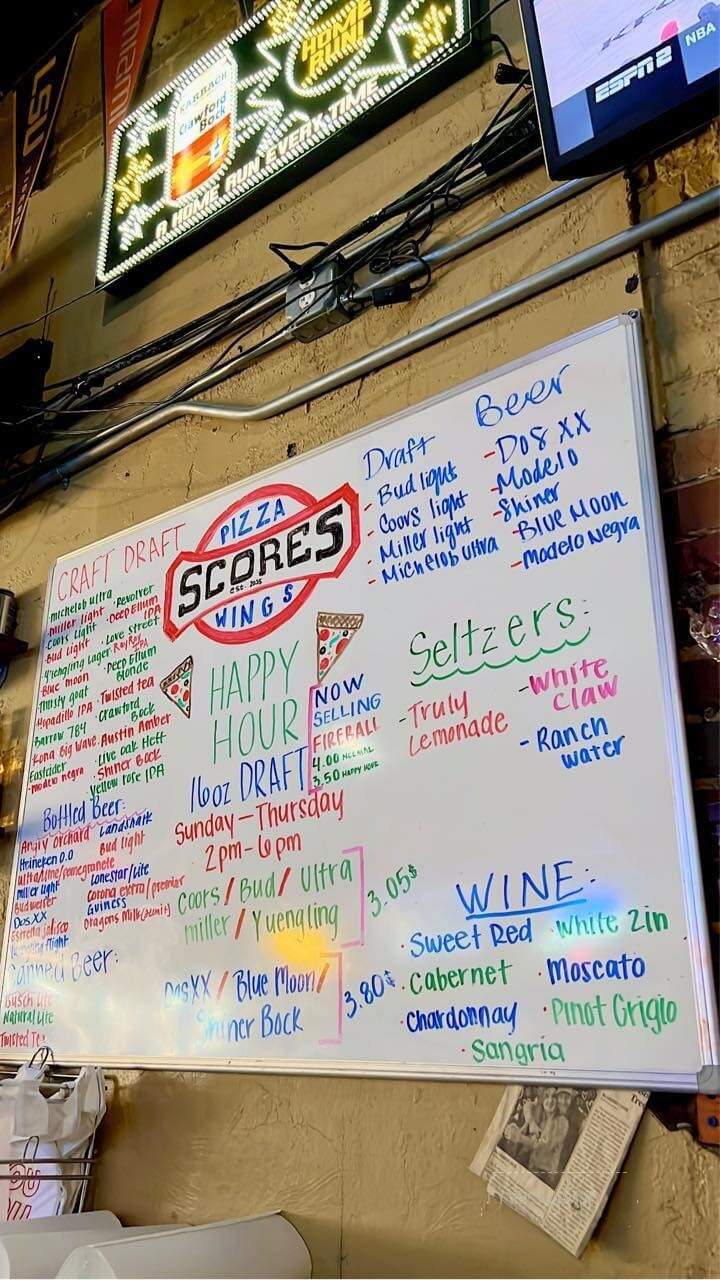 LSU
KARBACH
Crawford
Bock
HOME
RUN!
A HOME RUN EVERY TIME
ESPN2
NBA
KFC
CRAFT DRAFT
michelob ultra
miller light
Coors light
Bud light
Yuengling Lager
Blue moon
Thirsty goat
Hopadillo IPA
Barrow 789
Kona Big Wave
Eastcider
-modelo negra
·Revolver
·Deep Ellum
IPA
·Love Street
·Deep Ellum
Blonde
·Twisted tea
·Crawford
Bock
·Austin Amber
·Live oak Heff
·Shiner Bock
·Yellow rose IPA
PIZZA
SCORES
est. 2015
WINGS
Draft Beer
- Bud light
- Coors light
- Miller light
- Michelob ultra
-Dos XX
-Modelo
-Shiner
-Blue Moon
-modelo Negra
HAPPY
HOUR
16oz DRAFT
Sunday-Thursday
2pm-6pm
Coors/Bud/Ultra
miller/Yuengling
3.05¢
DosXX/Blue Moon/
Shiner Bock
3.80¢
NOW
SELLING
FIREBALL
4.00 NORMAL
3.50 HAPPY HOUR
Seltzers:
-Truly
Lemonade
-White
Claw
-Ranch
water
Bottled Beer:
Angry Orchard
Heineken 0.0
ultra/lime/pomegranate
miller light
Budweiser
Dos XX
Estrella jalisco
Landshark
Bud light
Lonestar/lite
Corona extra/premier
Guiness
Dragons Milk
Canned Beer:
Busch Lite
Natural Lite
Twisted Tea
WINE:
·Sweet Red
·White Zin
·Cabernet
·Moscato
·Chardonnay
·Pinot Grigio
·Sangria